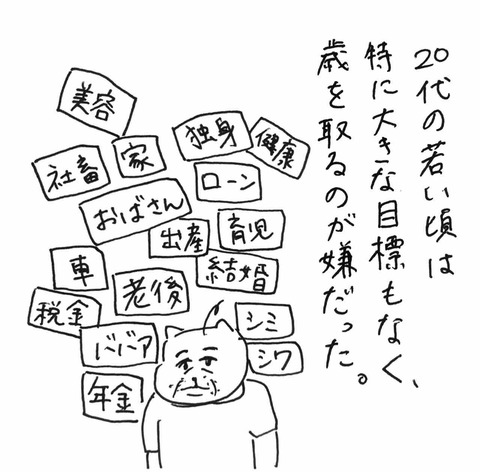 20代の若い頃は
特に大きな目標もなく、
歳を取るのが嫌だった。
美容
独身
健康
家
社畜
ローン
おばさん
育児
出産
車
結婚
老後
税金
シミ
ババア
シワ
年金